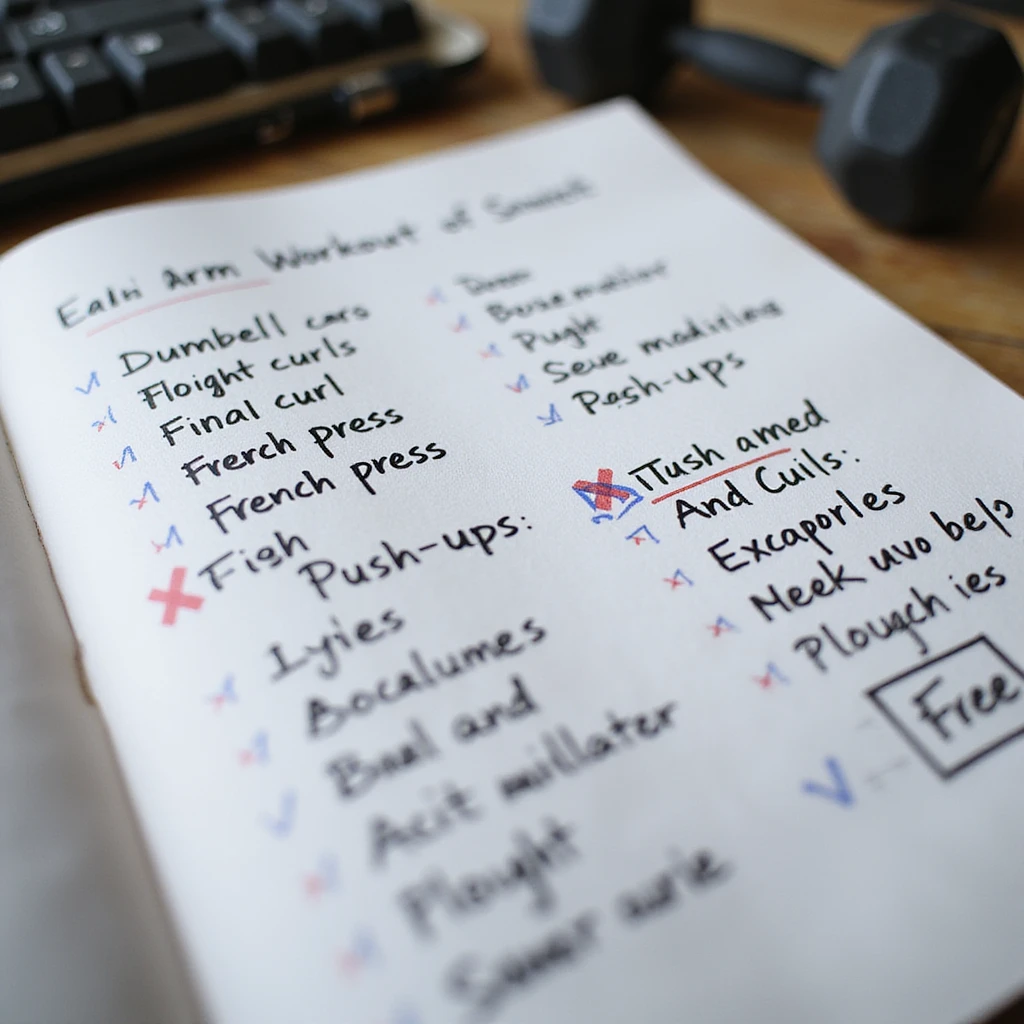 Ealni Arm Workout of
Dumbell cars
Floight curls
Final curl
Frerch press
French press
Fish
Push-ups:
Lyies
Bocalumes
Baal and
Acit millater
Plought
Pught
Seve
Pash-ups
Tush amed
And Cuils:
Excaporles
Meek uvo belp
Plougch ies
Free